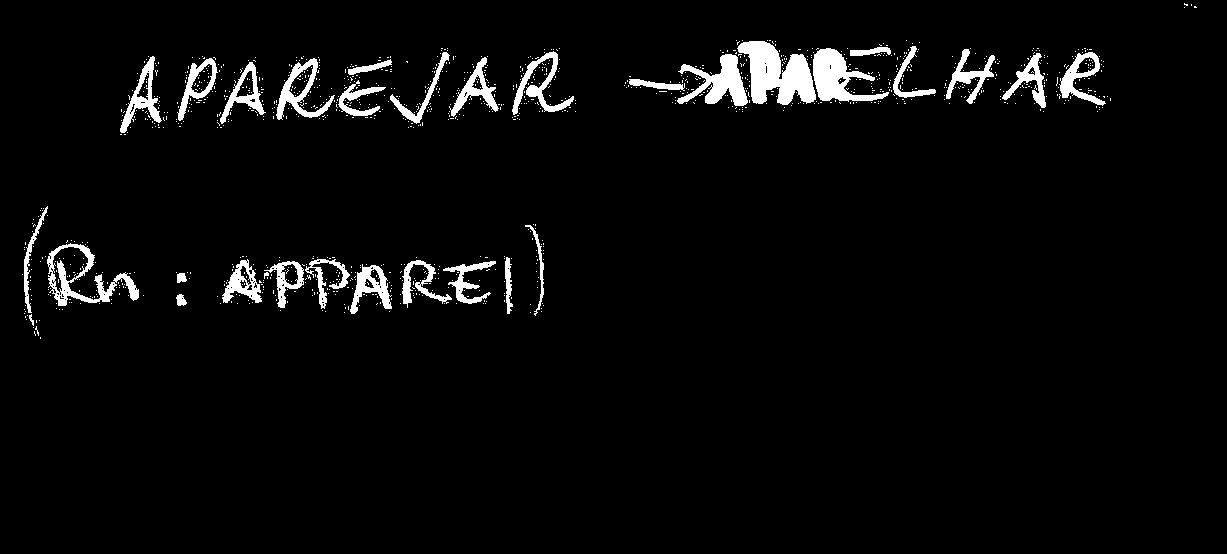 APAREJAR → APARELHAR
(Rn : APPAREI)